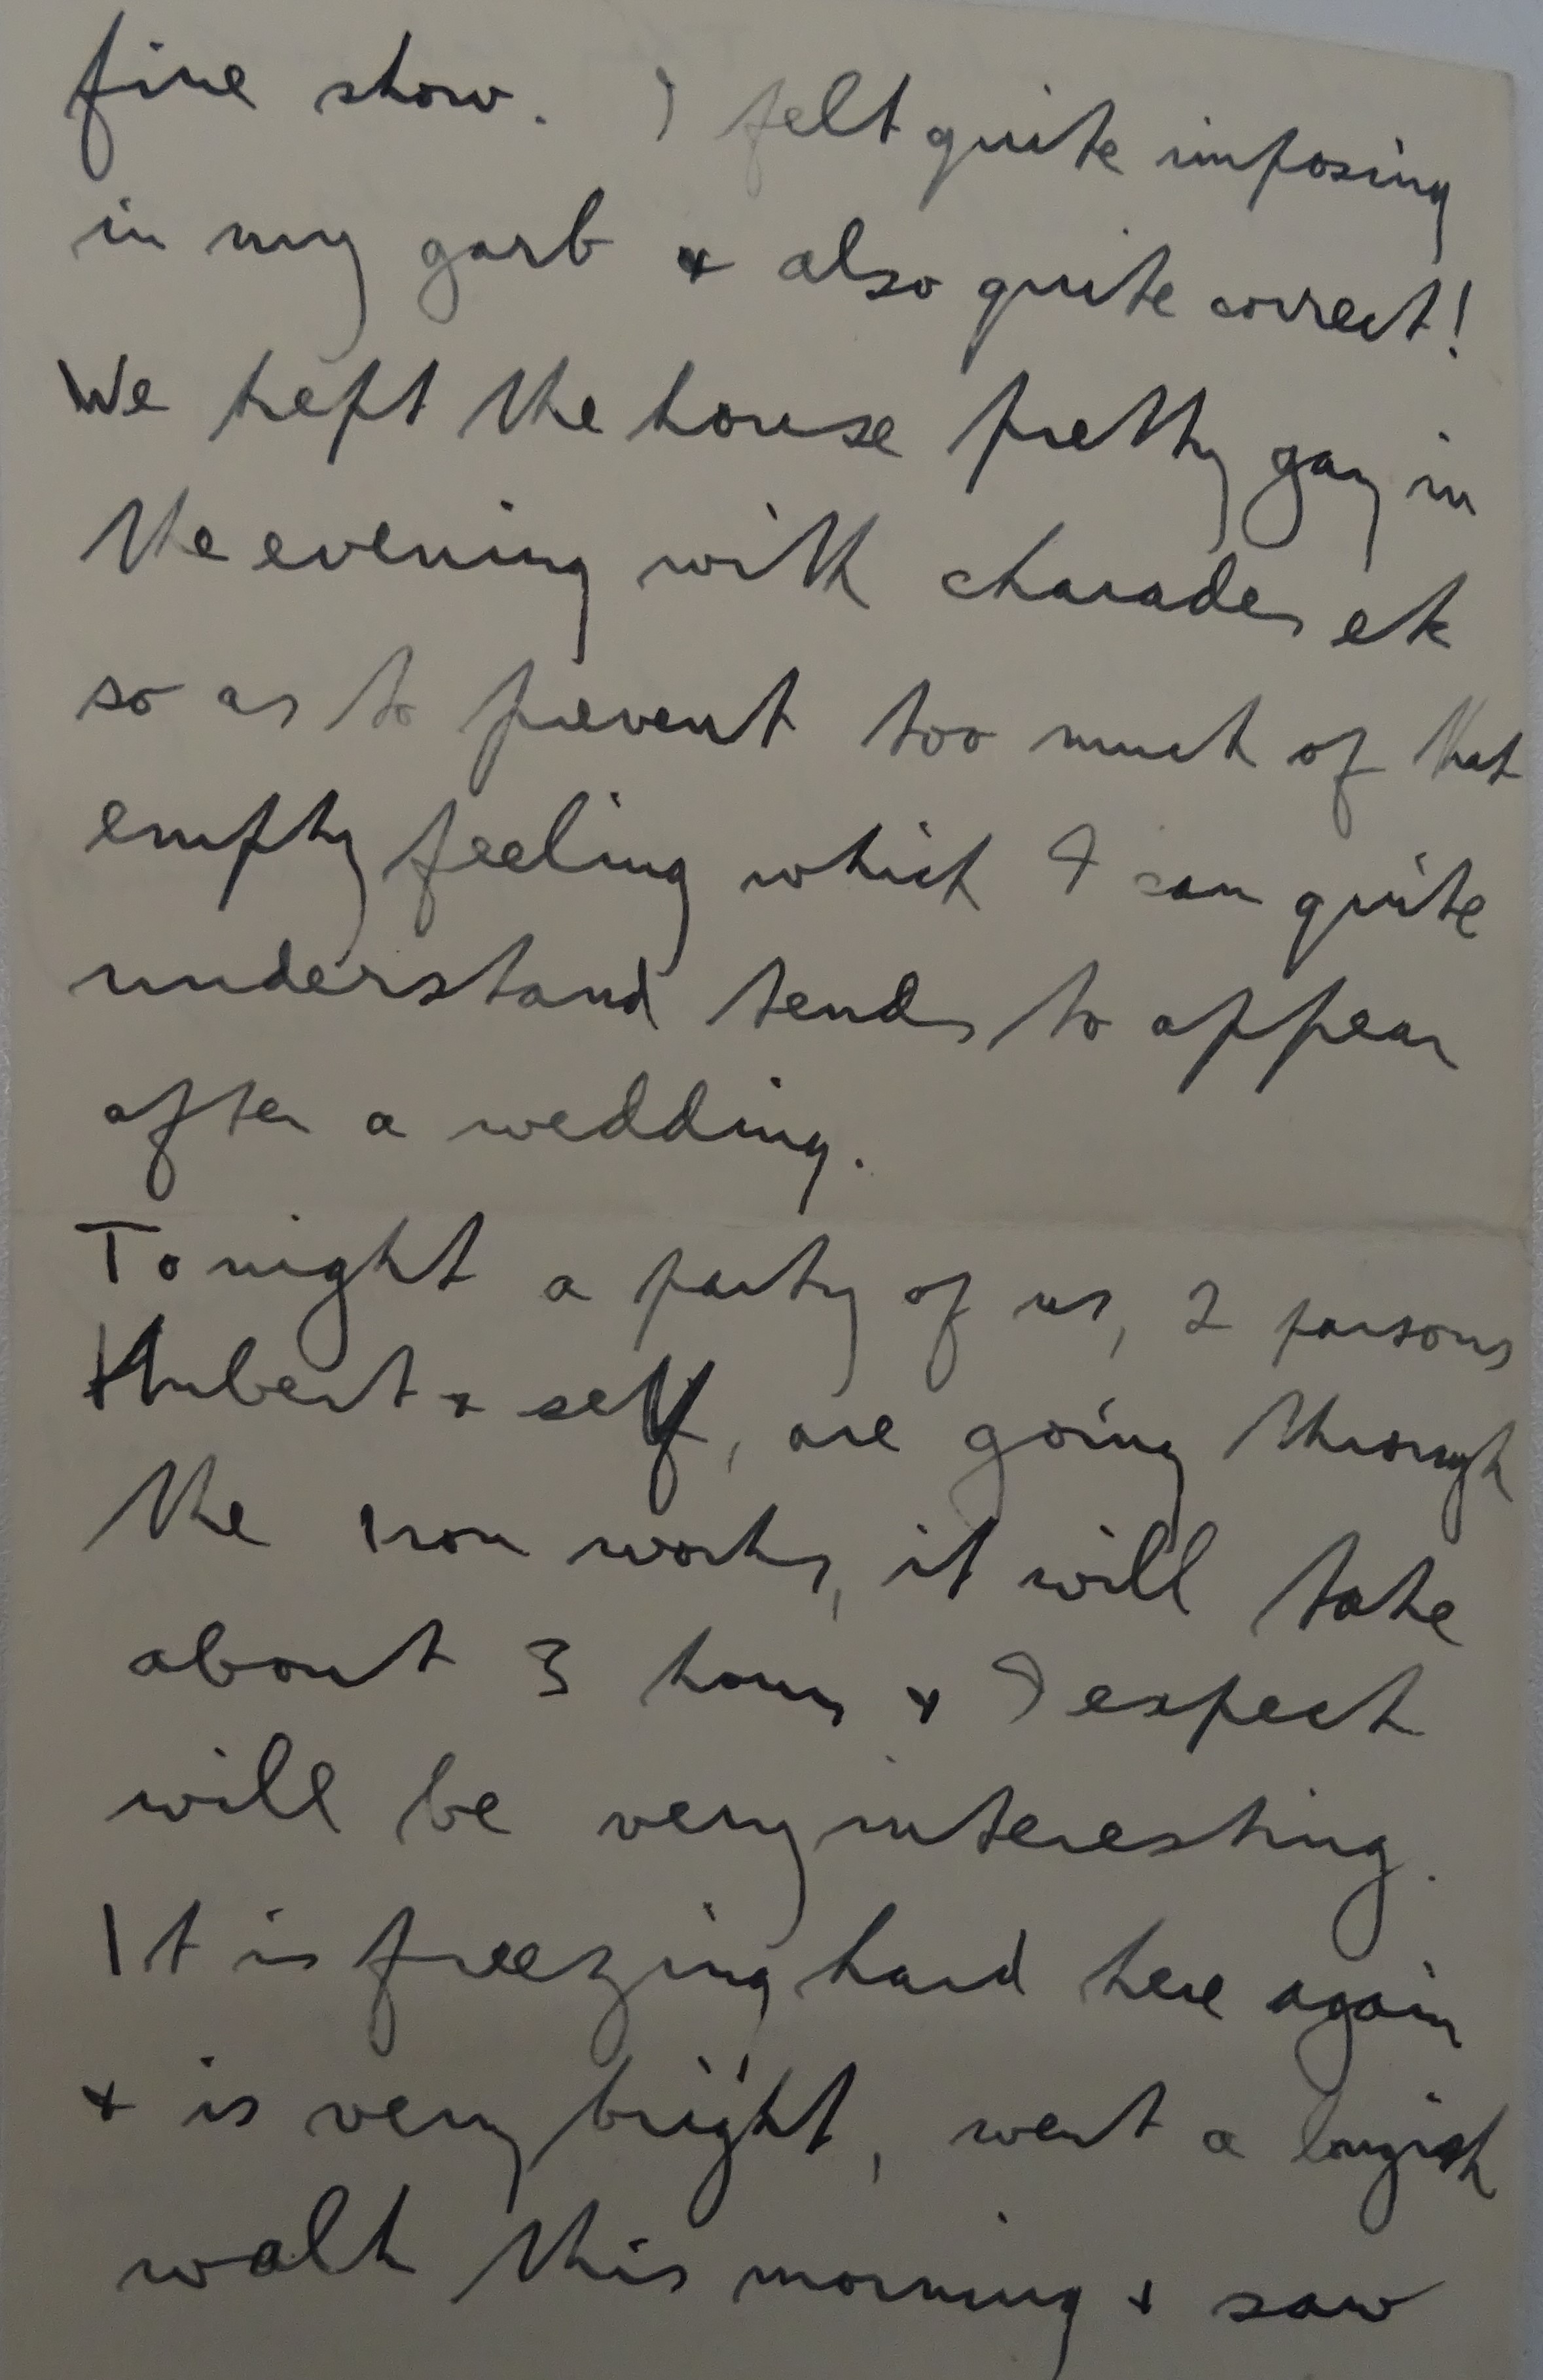 fine show. I felt quite imposing
in my garb & also quite correct!
We kept the house pretty gay in
the evening with charades etc
so as to prevent too much of that
empty feeling which I can quite
understand tends to appear
after a wedding.
Tonight a party of us, 2 parsons
Hubert & self, are going through
the Iron works, it will take
about 3 hours & I expect
will be very interesting.
It is freezing hard here again
& is very bright, went a longish
walk this morning & saw